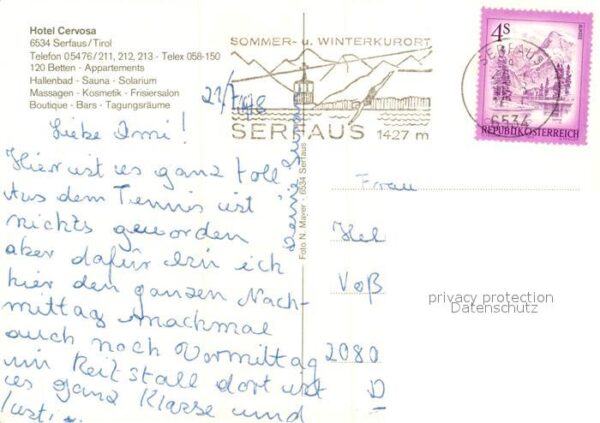 Hotel Cervosa
6534 Serfaus/Tirol
Telefon 05476/211, 212, 213 - Telex 058-150
120 Betten - Appartements
Hallenbad - Sauna - Solarium
Massagen - Kosmetik - Frisiersalon
Boutique - Bars - Tagungsräume
SOMMER- u. WINTERKURORT
SERFAUS 1427 m
4S
REPUBLIK ÖSTERREICH
SERFAUS
6534
Liebe Omi!
Hier ist es ganz toll.
Aus dem Tennis ist
nichts geworden
aber dafür bin ich
hier den ganzen Nach-
mittag machmal
auch noch Vormittag
im Reitstall dort ist
es ganz Klasse und
Foto N. Mayer - 6534 Serfaus
Frau
Hel
Voß
2080
D
privacy protection
Datenschutz